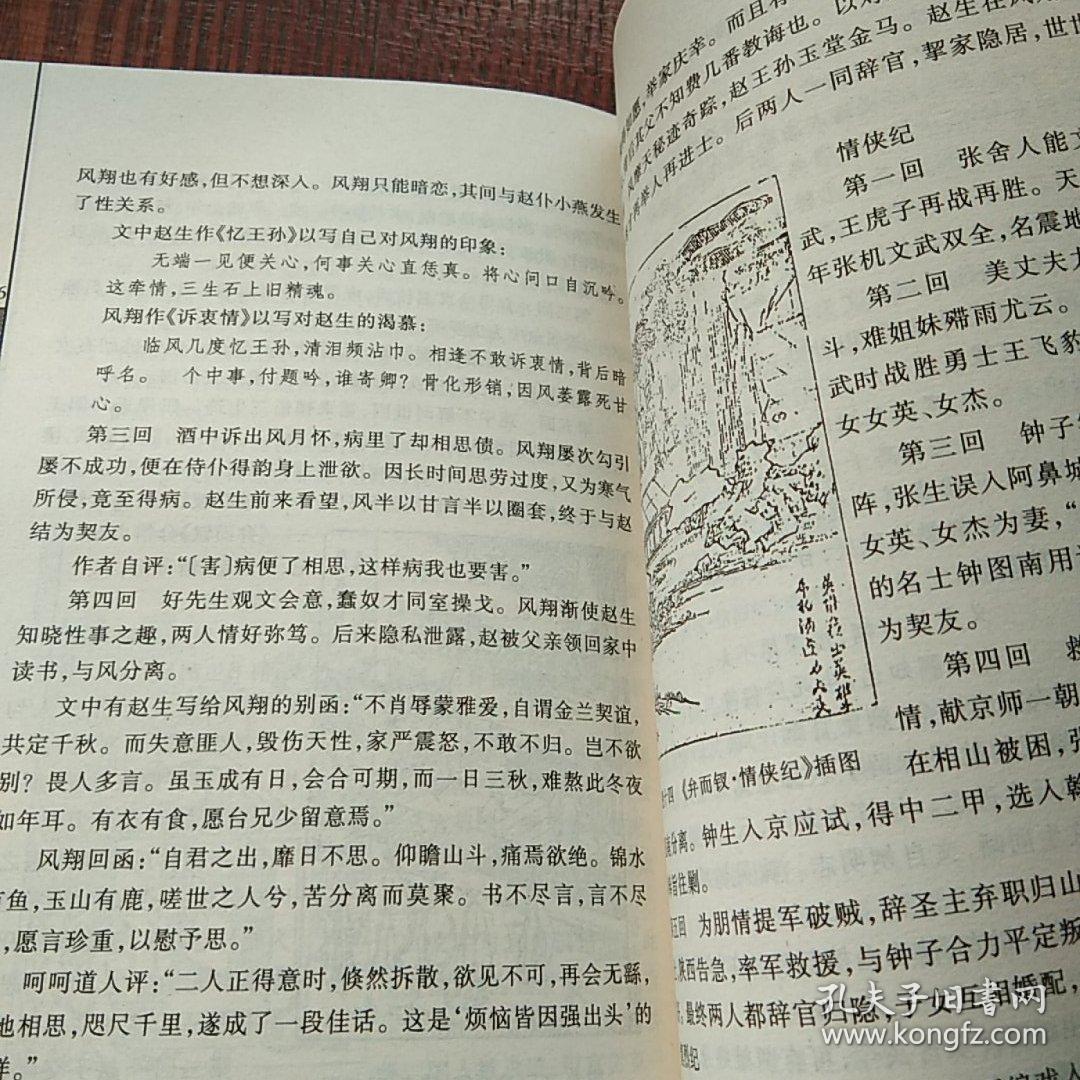 风翔也有好感,但不想深入。风翔只能暗恋,其间与赵仆小燕发生
了性关系。
文中赵生作《忆王孙》以写自己对风翔的印象:
无端一见便关心,何事关心直恁真。将心问口自沉吟。
这牵情,三生石上旧精魂。
风翔作《诉衷情》以写对赵生的渴慕:
临风几度忆王孙,清泪频沾巾。相逢不敢诉衷情,背后暗
呼名。 个中事,付题吟,谁寄卿?骨化形销,因风萎露死甘
心。
第三回 酒中诉出风月怀,病里了却相思债。风翔屡次勾引
屡不成功,便在侍仆得韵身上泄欲。因长时间思劳过度,又为寒气
所侵,竟至得病。赵生前来看望,风半以甘言半以圈套,终于与赵
结为契友。
作者自评:“〔害〕病便了相思,这样病我也要害。”
第四回 好先生观文会意,蠢奴才同室操戈。风翔渐使赵生
知晓性事之趣,两人情好弥笃。后来隐私泄露,赵被父亲领回家中
读书,与风分离。
文中有赵生写给风翔的别函:“不肖辱蒙雅爱,自谓金兰契谊,
共定千秋。而失意匪人,毁伤天性,家严震怒,不敢不归。岂不欲
别?畏人多言。虽玉成有日,会合可期,而一日三秋,难熬此冬夜
如年耳。有衣有食,愿台兄少留意焉。”
风翔回函:“自君之出,靡日不思。仰瞻山斗,痛焉欲绝。锦水
有鱼,玉山有鹿,嗟世之人兮,苦分离而莫聚。书不尽言,言不尽
,愿言珍重,以慰予思。”
呵呵道人评:“二人正得意时,倏然拆散,欲见不可,再会无繇,
地相思,咫尺千里,遂成了一段佳话。这是‘烦恼皆因强出头’的
样。”
愿,举家庆幸。而且有
其父不知费几番教诲也。以
风摩天秘迹奇踪,赵王孙玉堂金马。赵生在风
再举人再进士。后两人一同辞官,挈家隐居,世世
情侠纪
第一回 张舍人能文
武,王虎子再战再胜。天
年张机文武双全,名震地
第二回 美丈夫
斗,难姐妹殢雨尤云。
武时战胜勇士王飞豹
女女英、女杰。
第三回 钟子
阵,张生误入阿鼻城
女英、女杰为妻,“
的名士钟图南用
为契友。
第四回 救
情,献京师一朝
四 《弁而钗·情侠纪》插图
在相山被困,张
分离。钟生入京应试,得中二甲,选入翰
旨往剿。
回 为朋情提军破贼,辞圣主弃职归山
陕西告急,率军救援,与钟子合力平定叛
最终两人都辞官归隐,子女互相婚配,
烈纪
孔夫子旧书网
www.kongfz.com